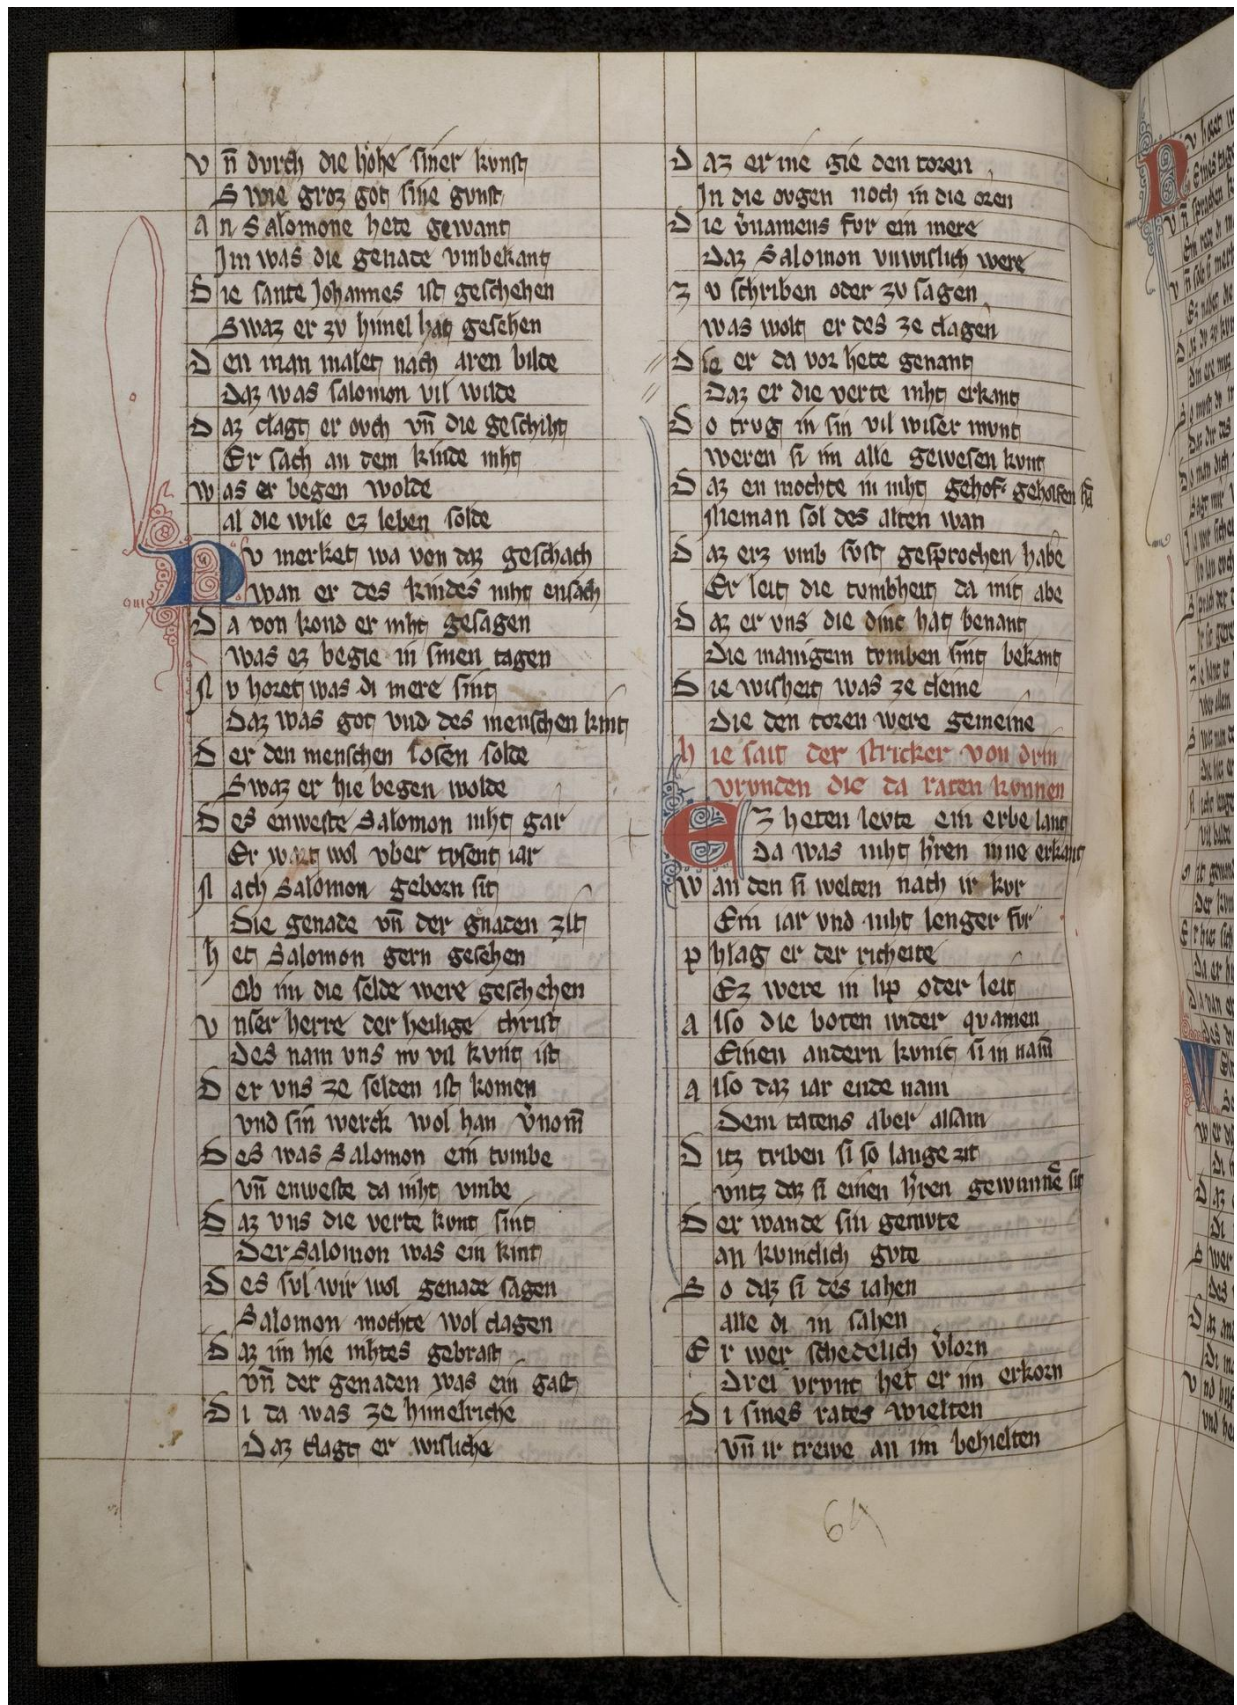 Vn̄ dvrch die hohe siner kvnst
Swie groz got sine gvnst
an Salomone hete gewant
Im was die genade vmbekant
Die sante Johannes ist geschehen
Swaz er zv himel hat gesehen
Den man malet nach aren bilde
Daz was salomon vil wilde
Daz clagt er ovch vn̄ die geschiht
Er sach an dem kinde niht
was er begen wolde
al die wile ez leben solde
Nv merket wa von daz geschach
wan er des kindes niht ensach
Da von kond er niht gesagen
was ez begie in sinen tagen
Nv horet was di mere sint
Daz was got vnd des menschen kint
Der den menschen losen solde
Swaz er hie begen wolde
Des enweste Salomon niht gar
Er wart wol vber tvsent iar
Nach Salomon geborn sit
Die genade vn̄ der gnaden zit
het Salomon gern gesehen
Ob im die selde were geschehen
vnser herre der heilige christ
des nam vns nv vil kvnt ist
Der vns ze selden ist komen
vnd sin werck wol han v̓nom̄
Des was Salomon ein tvmbe
vn̄ enweste da niht vmbe
Daz vns die verte kvnt sint
Der Salomon was ein kint
Des svl wir wol genade sagen
Salomon mochte wol clagen
Daz im hie nihtes gebrast
vn̄ der genaden was ein gast
Di da was ze himelriche
Daz clagt er wisliche
Daz er nie gie den toren
In die ovgen noch in die oren
Die v̓namens fvr ein mere
Daz Salomon vnwislich were
zv schriben oder zv sagen
was wolt er des ze clagen
Die er da vor hete genant
Daz er die verte niht erkant
Do trvg in sin vil wiser mvnt
weren si im alle gewesen kvnt
Daz en mochte in niht gehof: geholfen hā
Nieman sol des alten wan
Daz erz vmb svst gesprochen habe
Er leit die tvmbheit da mit abe
Daz er vns die dinc hat benant
Die manigem tvmben sint bekant
Die wisheit was ze cleine
Die den toren were gemeine
hie sait der stricker von drin
vrvnden die da raten kvnnen
Ez heten levte ein erbe lant
Da was niht h̓ren inne erkant
wan den si welten nach ir kvr
Ein iar vnd niht lenger fvr
phlag er der richeite
Ez were in lip oder leit
also die boten wider qvamen
Einen andern kvnic si in nam̄
also daz iar ende nam
Dem tatens aber alsam
Ditz triben si so lange zit
vntz daz si einen h̓ren gewunnē sit
Der wande sin gemvte
an kvniclich gvte
So daz si des iahen
alle di in sahen
Er wer schedelich v̓lorn
Drei vrvnt het er im erkorn
Di sines rates wielten
vn̄ ir trewe an im behielten
64